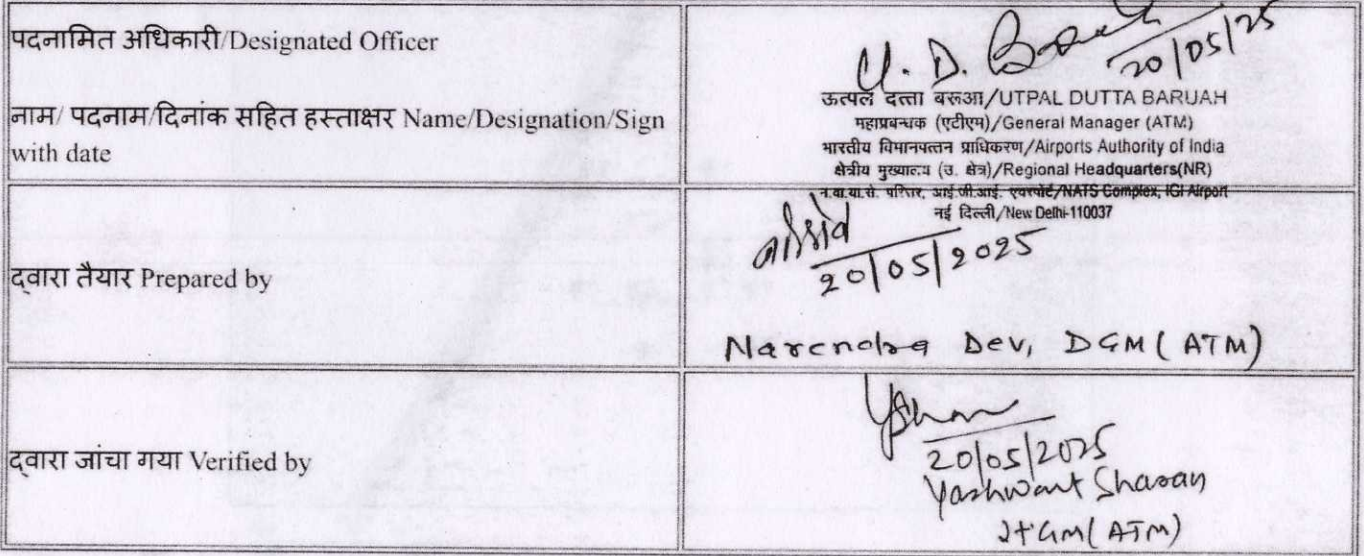 पदनामित अधिकारी/Designated Officer
नाम/ पदनाम/दिनांक सहित हस्ताक्षर Name/Designation/Sign
with date
U. D. Baruah
20/05/25
ऊत्पल दत्ता बरूआ/UTPAL DUTTA BARUAH
महाप्रबन्धक (एटीएम)/General Manager (ATM)
भारतीय विमानपत्तन प्राधिकरण/Airports Authority of India
क्षेत्रीय मुख्यालय (उ. क्षे)/Regional Headquarters(NR)
न.वा.या.से. परिसर, आई.जी.आई. एयरपोर्ट/NATS Complex, IGI Airport
नई दिल्ली/New Delhi-110037
द्वारा तैयार Prepared by
20/05/2025
Narendra Dev, DGM (ATM)
द्वारा जांचा गया Verified by
20/05/2025
Yashwant Sharan
GM(ATM)